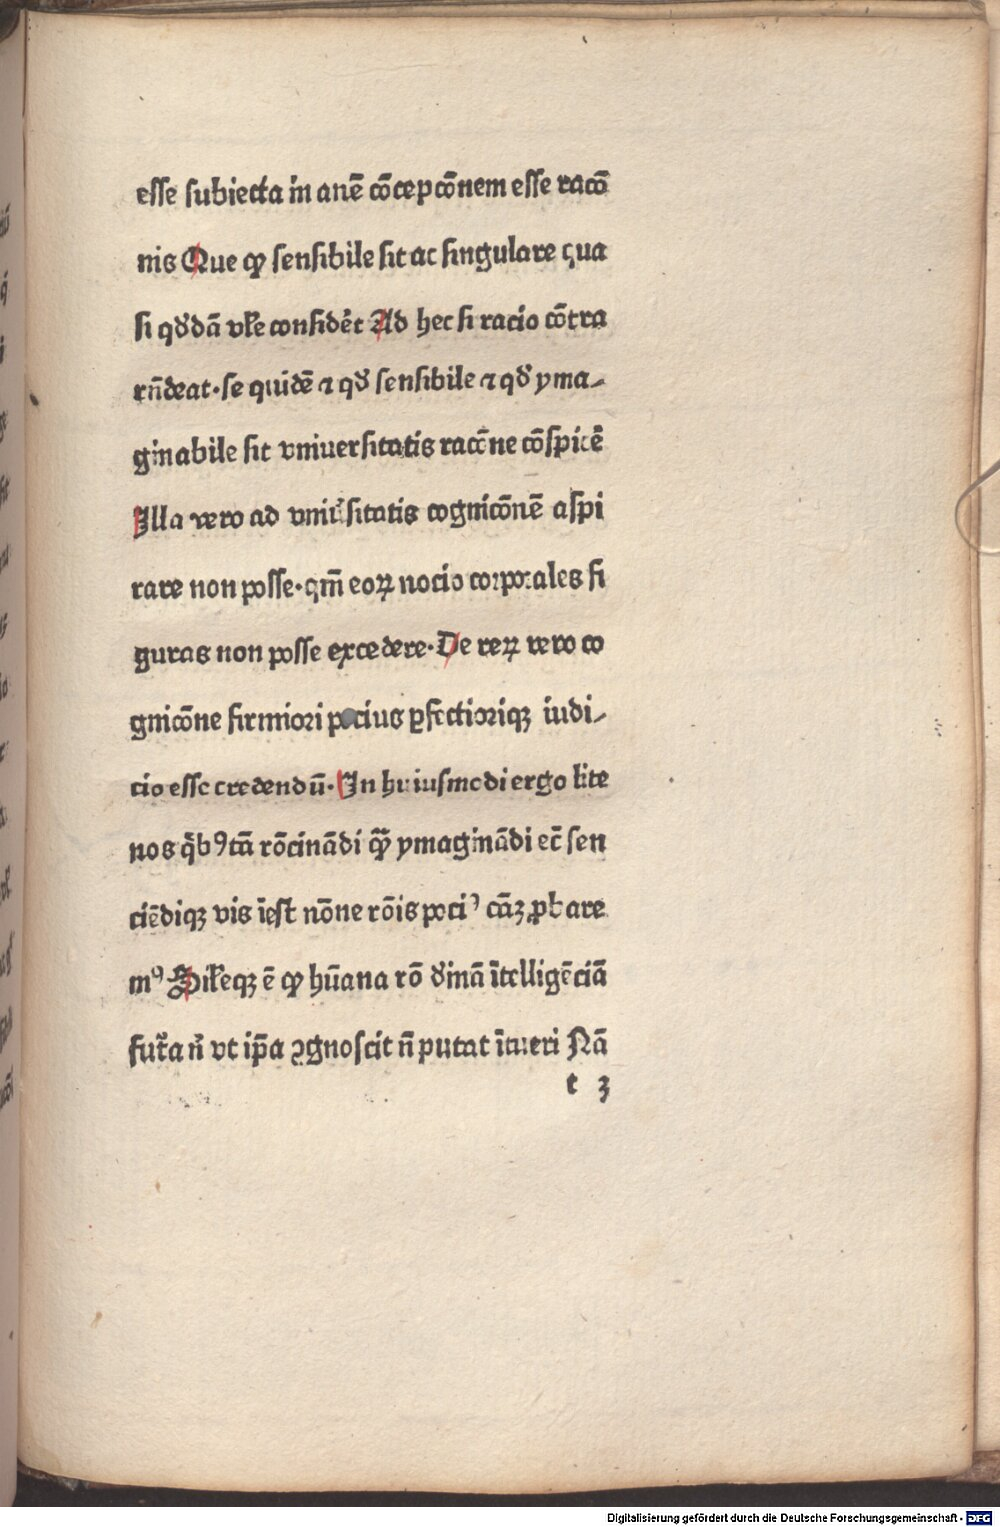 esse subiecta in anē cōcepcōnem esse racō
nis Que ꝙ sensibile sit ac singulare qua
si qd̛dā vl̛e considēt Ad hec si racio cōtra
rn̄deat·se quidē ⁊ qd̛ sensibile ⁊ qd̛ yma⸗
ginabile sit vniuersitatis racōne cōspicē
Illa vero ad vniu̇sitatis cognicōnē aspi
rare non posse·qm̄ eoꝝ nocio corporales fi
guras non posse excedere·De reꝝ vero co
gnicōne firmiori pocius ꝑfectioriqꝫ iudi⸗
cio esse credendū·In huiusmodi ergo lite
nos qͥbꝰ tā rōcinādi qͣꝫ ymaginādi ec̄ sen
ciēdiqꝫ vis īest nōne rōis pociꝰ cāꝫ ꝓbare
mꝰ Sil̛eqꝫ ē ꝙ hūana rō d̛inā ītelligēciā
futᷓa n̄ vt ip̄a ꝯgnoscit n̄ putat ītueri Nā
t 3
Digitalisierung gefördert durch die Deutsche Forschungsgemeinschaft - DFG